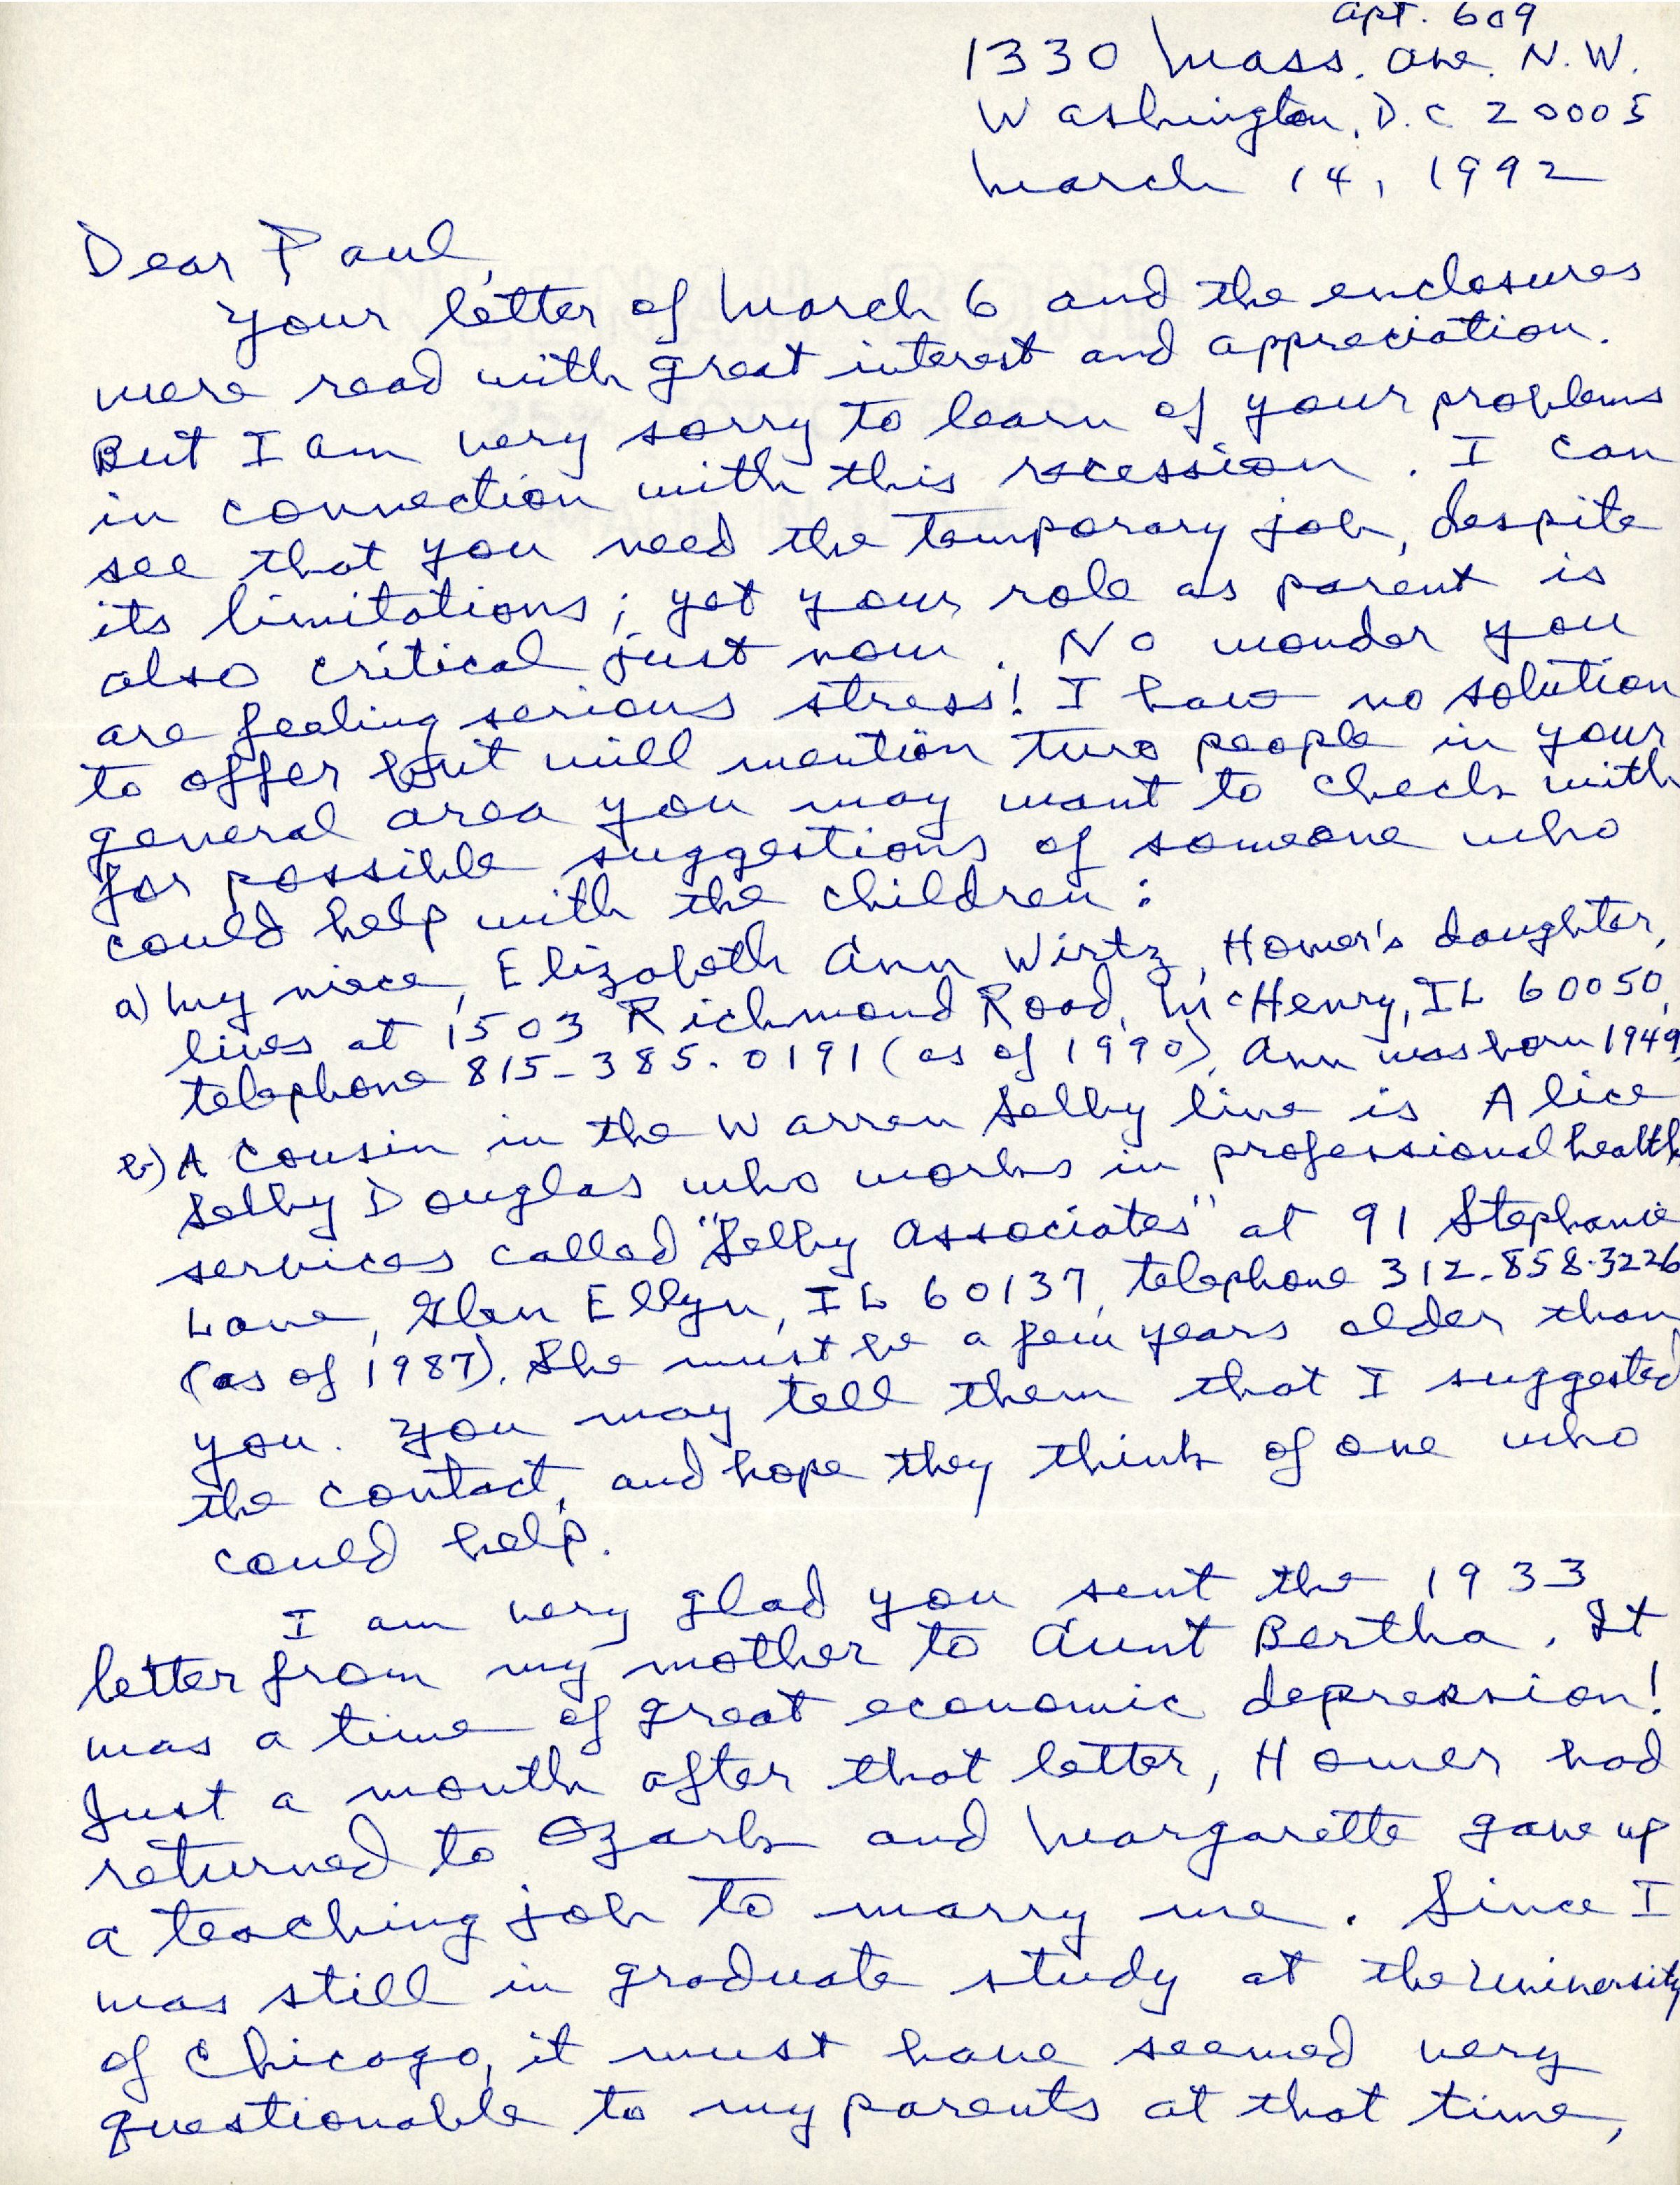 Apt. 609
1330 Mass. Ave. N.W.
Washington, D.C 20005
March 14, 1992
Dear Paul,
Your letter of March 6 and the enclosures
were read with great interest and appreciation.
But I am very sorry to learn of your problems
in connection with this recession. I can
see that you need the temporary job, despite
its limitations; yet your role as parent is
also critical just now. No wonder you
are feeling serious stress! I have no solution
to offer but will mention two people in your
general area you may want to check with
for possible suggestions of someone who
could help with the children:
a) My niece, Elizabeth Ann Wirtz, Homer's daughter,
lives at 1503 Richmond Road, McHenry, IL 60050,
telephone 815-385-0191 (as of 1990). Ann was born 1949.
b) A cousin in the Warren Selby line is Alice
Selby Douglas who works in professional health
services called "Selby Associates" at 91 Stephanie
Lane, Glen Ellyn, IL 60137, telephone 312-858-3226
(as of 1987). She must be a few years older than
you. You may tell them that I suggested
the contact, and hope they think of one who
could help.
I am very glad you sent the 1933
letter from my mother to Aunt Bertha. It
was a time of great economic depression!
Just a month after that letter, Homer had
returned to Ozark and Margarette gave up
a teaching job to marry me. Since I
was still in graduate study at the University
of Chicago, it must have seemed very
questionable to my parents at that time,